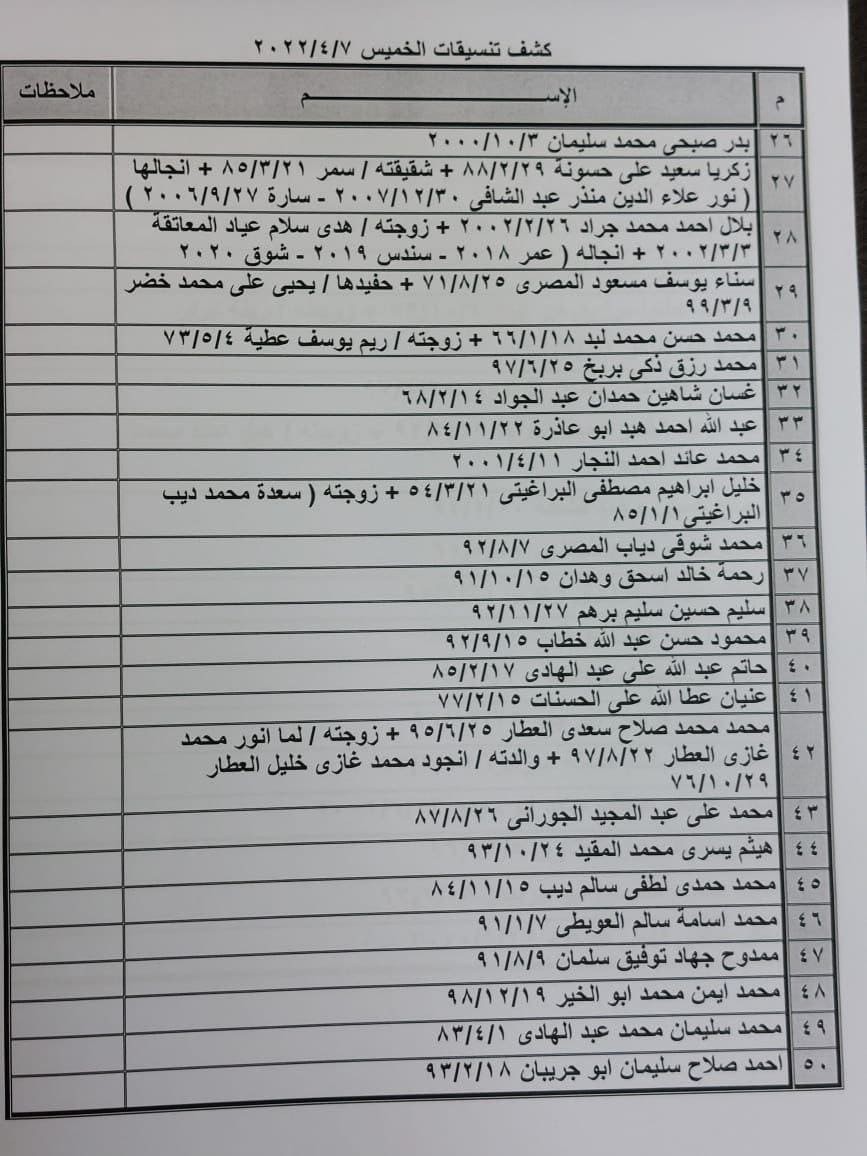 كشف تنسيقات الخميس ٢٠٢٢/٤/٧
م الإســـــــــــــــم ملاحظات
٢٦ بدر صبحى محمد سليمان ٢٠٠٠/١٠/٣
٢٧ زكريا سعيد على حسونة ٨٨/٢/٢٩ + شقيقته / سمر ٨٥/٣/٢١ + انجالها
( نور علاء الدين منذر عبد الشافى ٢٠٠٧/١٢/٣٠ - سارة ٢٠٠٦/٩/٢٧ )
٢٨ بلال احمد محمد جراد ٢٠٠٢/٢/٢٦ + زوجته / هدى سلام عياد المعاتقة
٢٠٠٢/٣/٣ + انجاله ( عمر ٢٠١٨ - سندس ٢٠١٩ - شوق ٢٠٢٠
٢٩ سناء يوسف مسعود المصرى ٧١/٨/٢٥ + حفيدها / يحيى على محمد خضر
٩٩/٣/٩
٣٠ محمد حسن محمد لبد ٦٦/١/١٨ + زوجته / ريم يوسف عطية ٧٣/٥/٤
٣١ محمد رزق ذكى بربخ ٩٧/٦/٢٥
٣٢ غسان شاهين حمدان عبد الجواد ٦٨/٢/١٤
٣٣ عبد الله احمد هبد ابو عاذرة ٨٤/١١/٢٢
٣٤ محمد عائد احمد النجار ٢٠٠١/٤/١١
٣٥ خليل ابراهيم مصطفى البراغيتى ٥٤/٣/٢١ + زوجته ( سعدة محمد ديب
البراغيتى ٨٥/١/١
٣٦ محمد شوقى دياب المصرى ٩٢/٨/٧
٣٧ رحمة خالد اسحق وهدان ٩١/١٠/١٥
٣٨ سليم حسين سليم برهم ٩٢/١١/٢٧
٣٩ محمود حسن عبد الله خطاب ٩٢/٩/١٥
٤٠ حاتم عبد الله على عبد الهادى ٨٥/٢/١٧
٤١ عنيان عطا الله على الحسنات ٧٧/٢/١٥
٤٢ محمد محمد صلاح سعدى العطار ٩٥/٦/٢٥ + زوجته / لما انور محمد
غازى العطار ٩٧/٨/٢٢ + والدته / انجود محمد غازى خليل العطار
٧٦/١٠/٢٩
٤٣ محمد على عبد المجيد الجورانى ٨٧/٨/٢٦
٤٤ هيثم يسرى محمد المقيد ٩٣/١٠/٢٤
٤٥ محمد حمدى لطفى سالم ديب ٨٤/١١/١٥
٤٦ محمد اسامة سالم العويطى ٩١/١/٧
٤٧ ممدوح جهاد توفيق سلمان ٩١/٨/٩
٤٨ محمد ايمن محمد ابو الخير ٩٨/١٢/١٩
٤٩ محمد سليمان محمد عبد الهادى ٨٣/٤/١
٥٠ احمد صلاح سليمان ابو جريبان ٩٣/٢/١٨